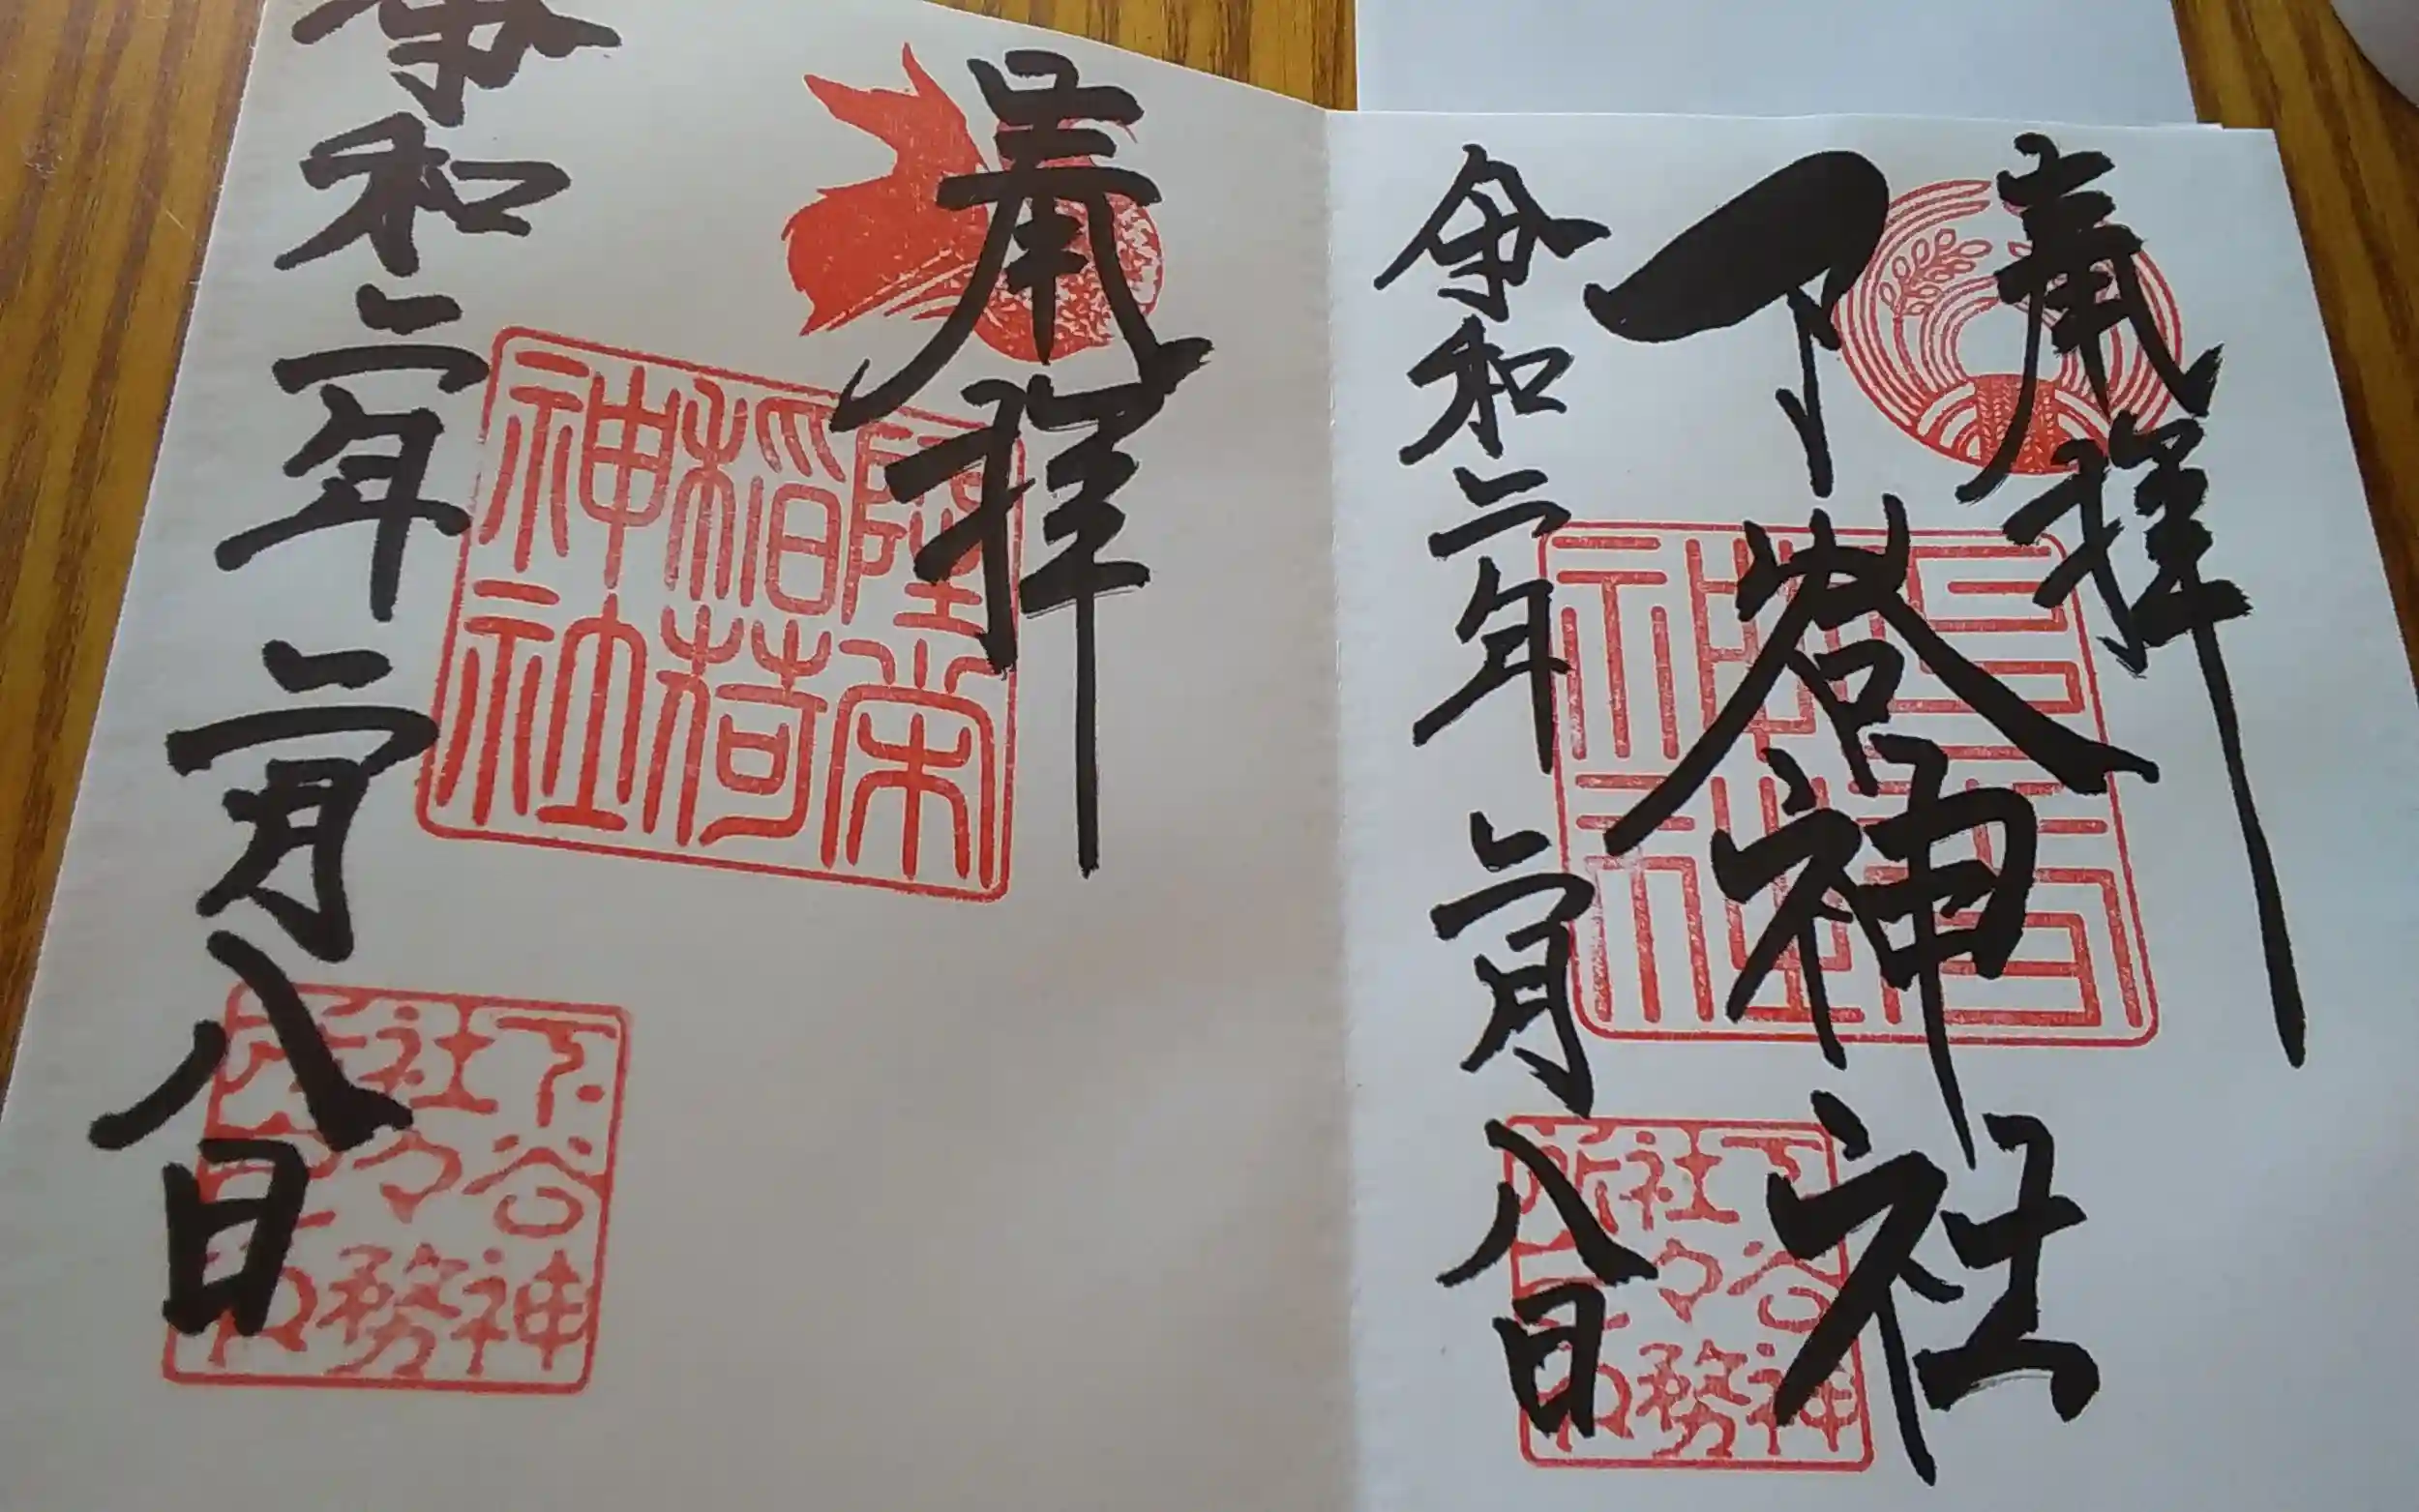 奉拝
下谷神社
下谷
神社
令和二年二月八日
下谷神
社々務
所之印
奉拝
隆栄
稲荷
神社
令和二年二月八日
下谷神
社々務
所之印